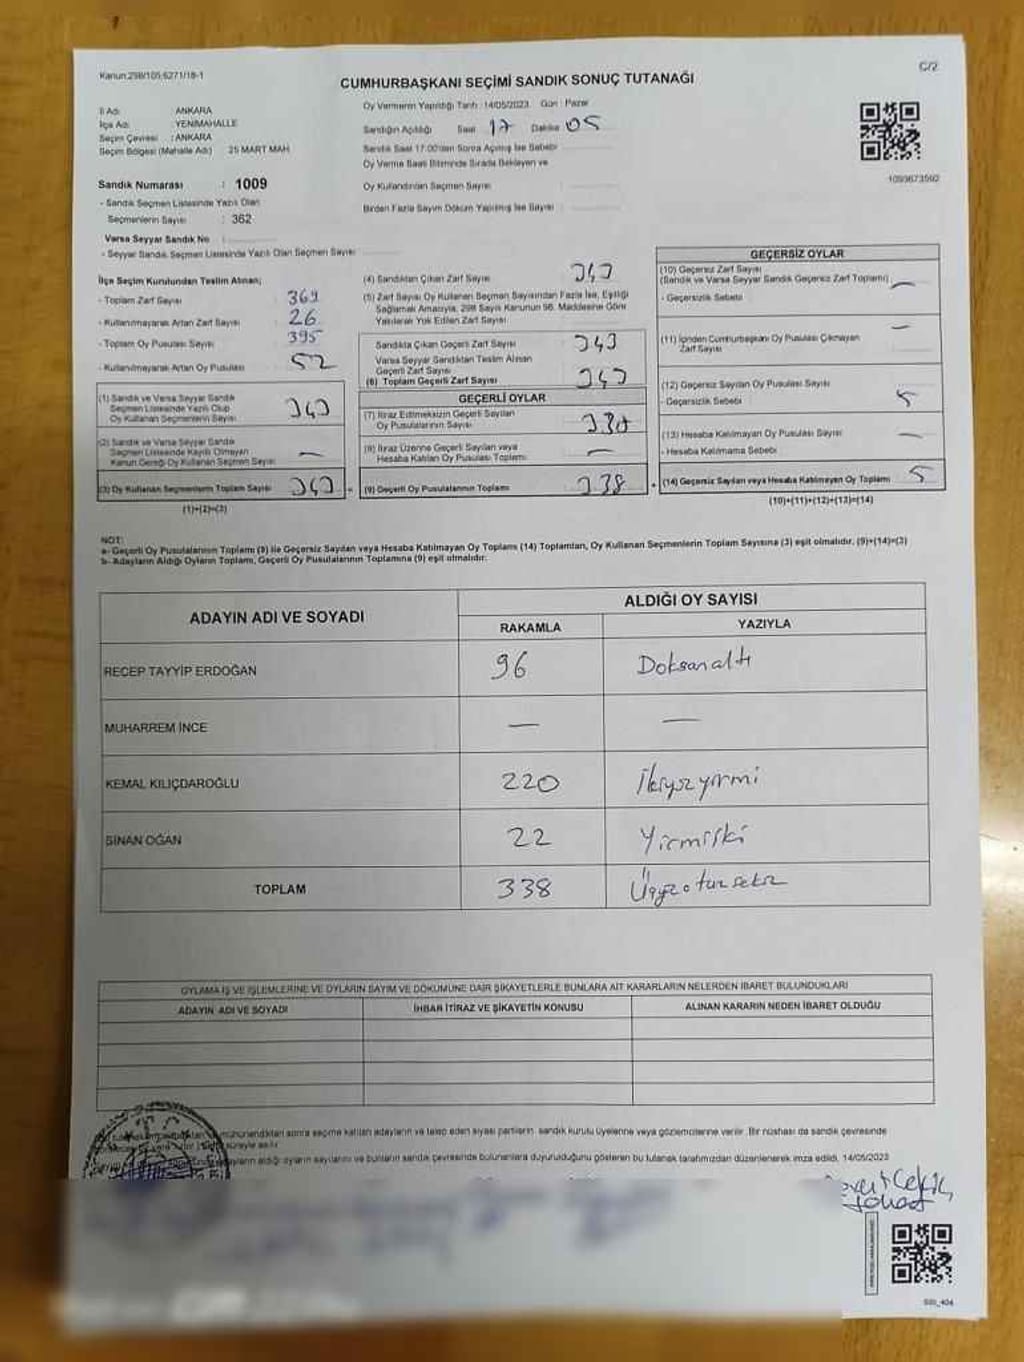 Kanun:298/105;6271/18-1
C/2
CUMHURBAŞKANI SEÇİMİ SANDIK SONUÇ TUTANAĞI
İl Adı : ANKARA
İlçe Adı : YENİMAHALLE
Seçim Çevresi : ANKARA
Seçim Bölgesi (Mahalle Adı) 25 MART MAH
Oy Vermenin Yapıldığı Tarih :14/05/2023 Gün : Pazar
Sandığın Açıldığı Saat 17 Dakika 05
Sandık Saat 17.00'den Sonra Açılmış İse Sebebi
Oy Verme Saati Bitiminde Sırada Bekleyen ve
Oy Kullandırılan Seçmen Sayısı
Birden Fazla Sayım Döküm Yapılmış İse Sayısı
1093673592
Sandık Numarası : 1009
- Sandık Seçmen Listesinde Yazılı Olan
Seçmenlerin Sayısı : 362
Varsa Seyyar Sandık No :
- Seyyar Sandık Seçmen Listesinde Yazılı Olan Seçmen Sayısı
İlçe Seçim Kurulundan Teslim Alınan;
- Toplam Zarf Sayısı 369
- Kullanılmayarak Artan Zarf Sayısı 26
- Toplam Oy Pusulası Sayısı 395
- Kullanılmayarak Artan Oy Pusulası 52
(1) Sandık ve Varsa Seyyar Sandık
Seçmen Listesinde Yazılı Olup
Oy Kullanan Seçmenlerin Sayısı 343
(2) Sandık ve Varsa Seyyar Sandık
Seçmen Listesinde Kayıtlı Olmayan
Kanun Gereği Oy Kullanan Seçmen Sayısı —
(3) Oy Kullanan Seçmenlerin Toplam Sayısı 343
(1)+(2)=(3)
(4) Sandıktan Çıkan Zarf Sayısı 343
(5) Zarf Sayısı Oy Kullanan Seçmen Sayısından Fazla İse, Eşitliği
Sağlamak Amacıyla, 298 Sayılı Kanunun 98. Maddesine Göre
Yakılarak Yok Edilen Zarf Sayısı
Sandıkta Çıkan Geçerli Zarf Sayısı 343
Varsa Seyyar Sandıktan Teslim Alınan
Geçerli Zarf Sayısı
(6) Toplam Geçerli Zarf Sayısı 343
GEÇERLİ OYLAR
(7) İtiraz Edilmeksizin Geçerli Sayılan
Oy Pusulalarının Sayısı 338
(8) İtiraz Üzerine Geçerli Sayılan veya
Hesaba Katılan Oy Pusulası Toplamı —
(9) Geçerli Oy Pusulalarının Toplamı 338
GEÇERSİZ OYLAR
(10) Geçersiz Zarf Sayısı
(Sandık ve Varsa Seyyar Sandık Geçersiz Zarf Toplamı) —
- Geçersizlik Sebebi
(11) İçinden Cumhurbaşkanı Oy Pusulası Çıkmayan
Zarf Sayısı —
(12) Geçersiz Sayılan Oy Pusulası Sayısı 5
- Geçersizlik Sebebi
(13) Hesaba Katılmayan Oy Pusulası Sayısı —
- Hesaba Katılmama Sebebi
(14) Geçersiz Sayılan veya Hesaba Katılmayan Oy Toplamı 5
(10)+(11)+(12)+(13)=(14)
NOT:
a- Geçerli Oy Pusulalarının Toplamı (9) ile Geçersiz Sayılan veya Hesaba Katılmayan Oy Toplamı (14) Toplamları, Oy Kullanan Seçmenlerin Toplam Sayısına (3) eşit olmalıdır. (9)+(14)=(3)
b- Adayların Aldığı Oyların Toplamı, Geçerli Oy Pusulalarının Toplamına (9) eşit olmalıdır.
ADAYIN ADI VE SOYADI
ALDIĞI OY SAYISI
RAKAMLA YAZIYLA
RECEP TAYYİP ERDOĞAN 96 Doksanaltı
MUHARREM İNCE — —
KEMAL KILIÇDAROĞLU 220 İkiyüzyirmi
SİNAN OĞAN 22 Yirmiiki
TOPLAM 338 Üçyüzotuzsekiz
OYLAMA İŞ VE İŞLEMLERİNE VE OYLARIN SAYIM VE DÖKÜMÜNE DAİR ŞİKAYETLERLE BUNLARA AİT KARARLARIN NELERDEN İBARET BULUNDUKLARI
ADAYIN ADI VE SOYADI İHBAR İTİRAZ VE ŞİKAYETİN KONUSU ALINAN KARARIN NEDEN İBARET OLDUĞU
sonra seçime katılan adayların ve talep eden siyasi partilerin, sandık kurulu üyelerine veya gözlemcilerine verilir. Bir nüshası da sandık çevresinde
aldığı oyların sayılarını ve bunların sandık çevresinde bulunanlara duyurulduğunu gösteren bu tutanak tarafımızdan düzenlenerek imza edildi. 14/05/2023